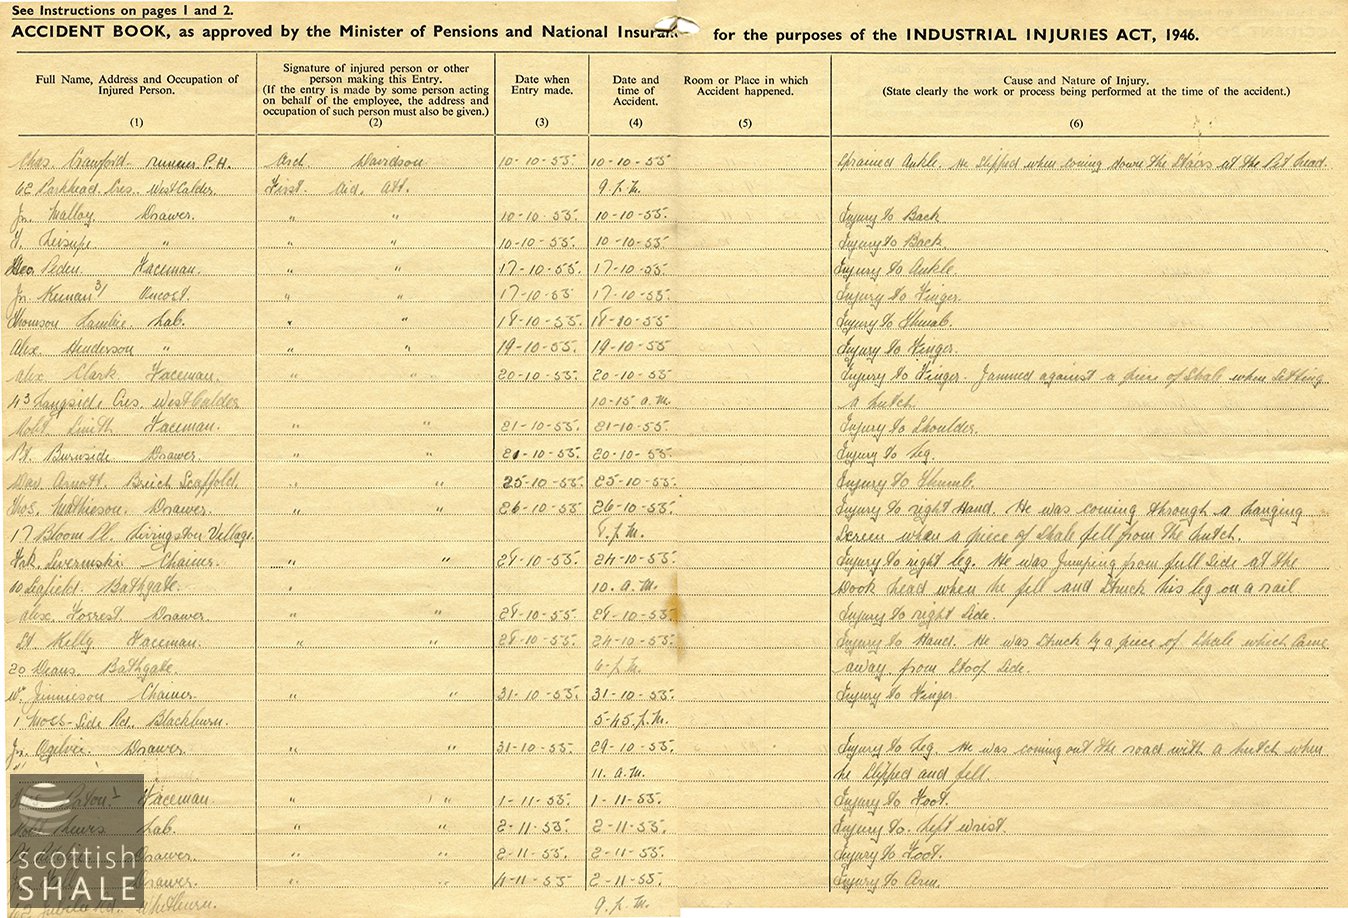 See Instructions on pages 1 and 2.
ACCIDENT BOOK, as approved by the Minister of Pensions and National Insuran for the purposes of the INDUSTRIAL INJURIES ACT, 1946.
Full Name, Address and Occupation of Injured Person. (1)
Signature of injured person or other person making this Entry. (If the entry is made by some person acting on behalf of the employee, the address and occupation of such person must also be given.) (2)
Date when Entry made. (3)
Date and time of Accident. (4)
Room or Place in which Accident happened. (5)
Cause and Nature of Injury. (State clearly the work or process being performed at the time of the accident.) (6)
Chas. Crawford. Runner P.H. Arch Davidson 10-10-55. 10-10-55. Sprained Ankle. He slipped when coming down the stairs at the Pit head.
62 Parkhead Cres. West Calder. First Aid. Att. 9 p.m.
Jn. Malloy Drawer. " " 10-10-55. 10-10-55. Injury to Back
" " " 10-10-55. 10-10-55. Injury to Back.
Geo. Peden Faceman. " " 17-10-55. 17-10-55. Injury to Ankle.
Jn. Oncost. " " 17-10-55 17-10-55. Injury to Finger.
Thomson Lab. " " 18-10-55. 18-10-55 Injury to Thumb.
Alex. Henderson " " " 19-10-55. 19-10-55. Injury to Finger.
Alex Clark Faceman. " " 20-10-55. 20-10-55. Injury to Finger. Jammed against a piece of shale when setting
43 Langside Cres. West Calder 10-15 a.m. a hutch.
Robt. Smith Faceman. " " 21-10-55. 21-10-55. Injury to Shoulder.
Pt. Burnside Drawer. " " 21-10-55. 20-10-55. Injury to Leg.
Dav. Arnott. Brick Scaffold. " " 25-10-55. 25-10-55. Injury to Thumb.
Thos. Mathieson. Drawer. " " 26-10-55 26-10-55. Injury to right Hand. He was coming through a hanging
17 Bloom Pl. Livingston Village. 8.p.m. Screen when a piece of shale fell from the hutch.
Chainer. " " 29-10-55. 24-10-55. Injury to right leg. He was jumping from full side at the
60 Seafield. Bathgate. 10. a.m. Dook head when he fell and struck his leg on a rail
Alex. Forrest Drawer " " 29-10-55. 29-10-55. Injury to right side.
Kelly Faceman. " " 28-10-55. 24-10-55. Injury to Hand. He was struck by a piece of shale which came
20 Deans Bathgate. 6-p.m. away from Stoop side.
Wm Jamieson Chainer. " " 31-10-55. 31-10-55. Injury to Finger.
1 Moss-side Rd. Blackburn. 5-45.p.m.
Jn. Ogilvie. Drawer. " " 31-10-55. 29-10-55. Injury to Leg. He was coming out the road with a hutch when
11. a.m. he slipped and fell.
Paton. Faceman. " " 1-11-55. 1-11-55. Injury to Foot.
Robt Lewis Lab. " " 2-11-55. 2-11-55. Injury to Left wrist.
Drawer. " " 2-11-55. 2-11-55. Injury to Foot.
Drawer. " " 4-11-55 2-11-55. Injury to Arm.
62 Jubilee Rd. Whitburn. 9.p.m.
scottish
SHALE